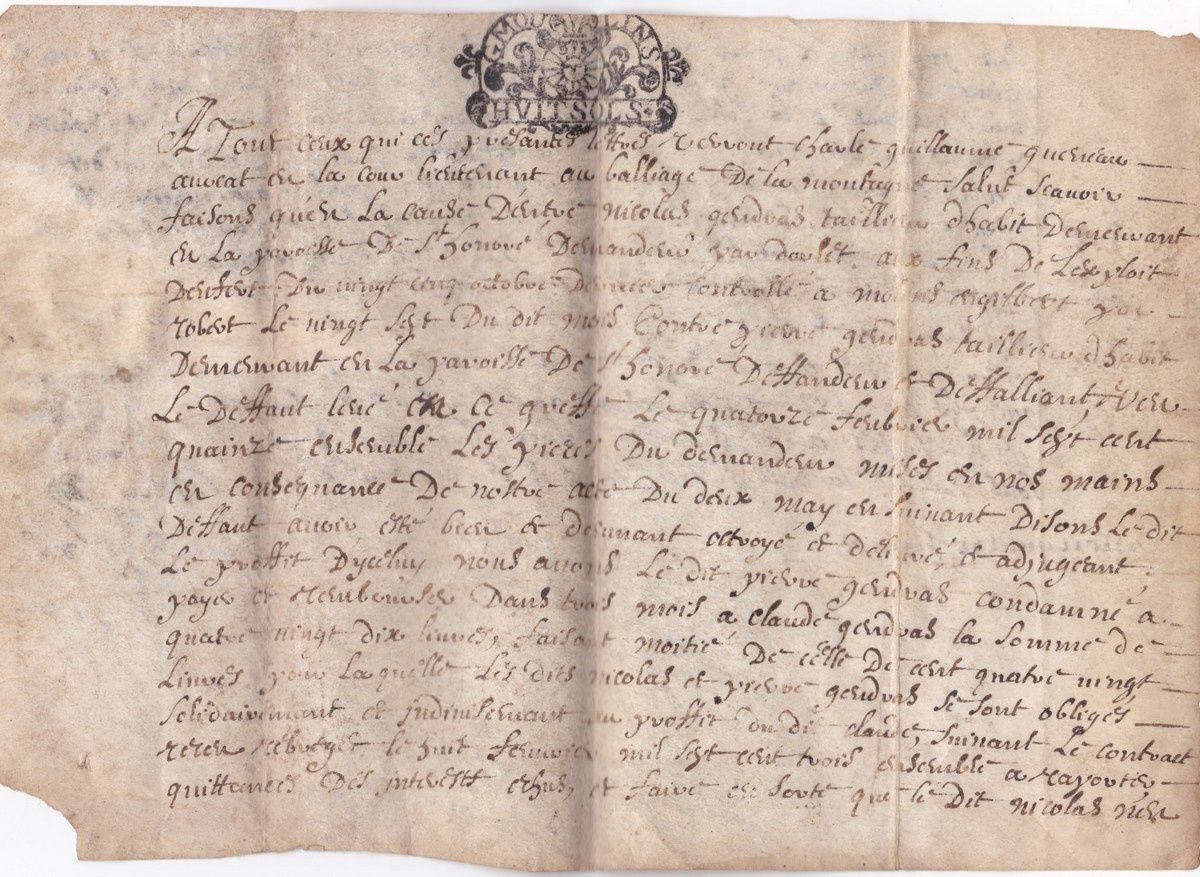 G MOULINS
HVIT SOLS
A Tout ceux qui ces presantes lettres verront charle guillaume
avocat en la cour lieutenant au balliage De la montagne salut scavoir
faisons quen La cause Dentre nicolas gendras taillieur dhabit Demeurant
en La paroisse De St honoré Demandeur par aux fins De Lexploit
Du vingt cinq octobre Dernier controllé a moulins engilbert par
robert Le vingt sept Du dit mois Contre pierre gendras taillieur dhabit
Demeurant en La paroisse De St honoré Deffandeur et Deffalliant, veu
Le Deffaut levé en ce greffe Le quatorze feubvrier mil sept cent
quainze ensemble Les pieces Du demandeur mises en nos mains
en consequance De nostre acte Du deux may en suivant Disons Le dit
Deffaut avoir esté bien et deumant octroyé et delivré, et adjugeant
Le proffit Dyceluy nous avons Le dit pierre gendras condamné a
payer et rembourser Dans trois mois a claude gendras la somme de
quatre vingt dix livres, faisant moitié De celle De cent quatre vingt
Livres pour Laquelle Les dits nicolas et pierre gendras se sont obligés
solidairemant et au proffit du dit claude, suivant Le contract
receu le huit feuvrier mil sept cent trois ensemble a raporter
quittances Des interest echus, et faire en sorte que le Dit nicolas nen